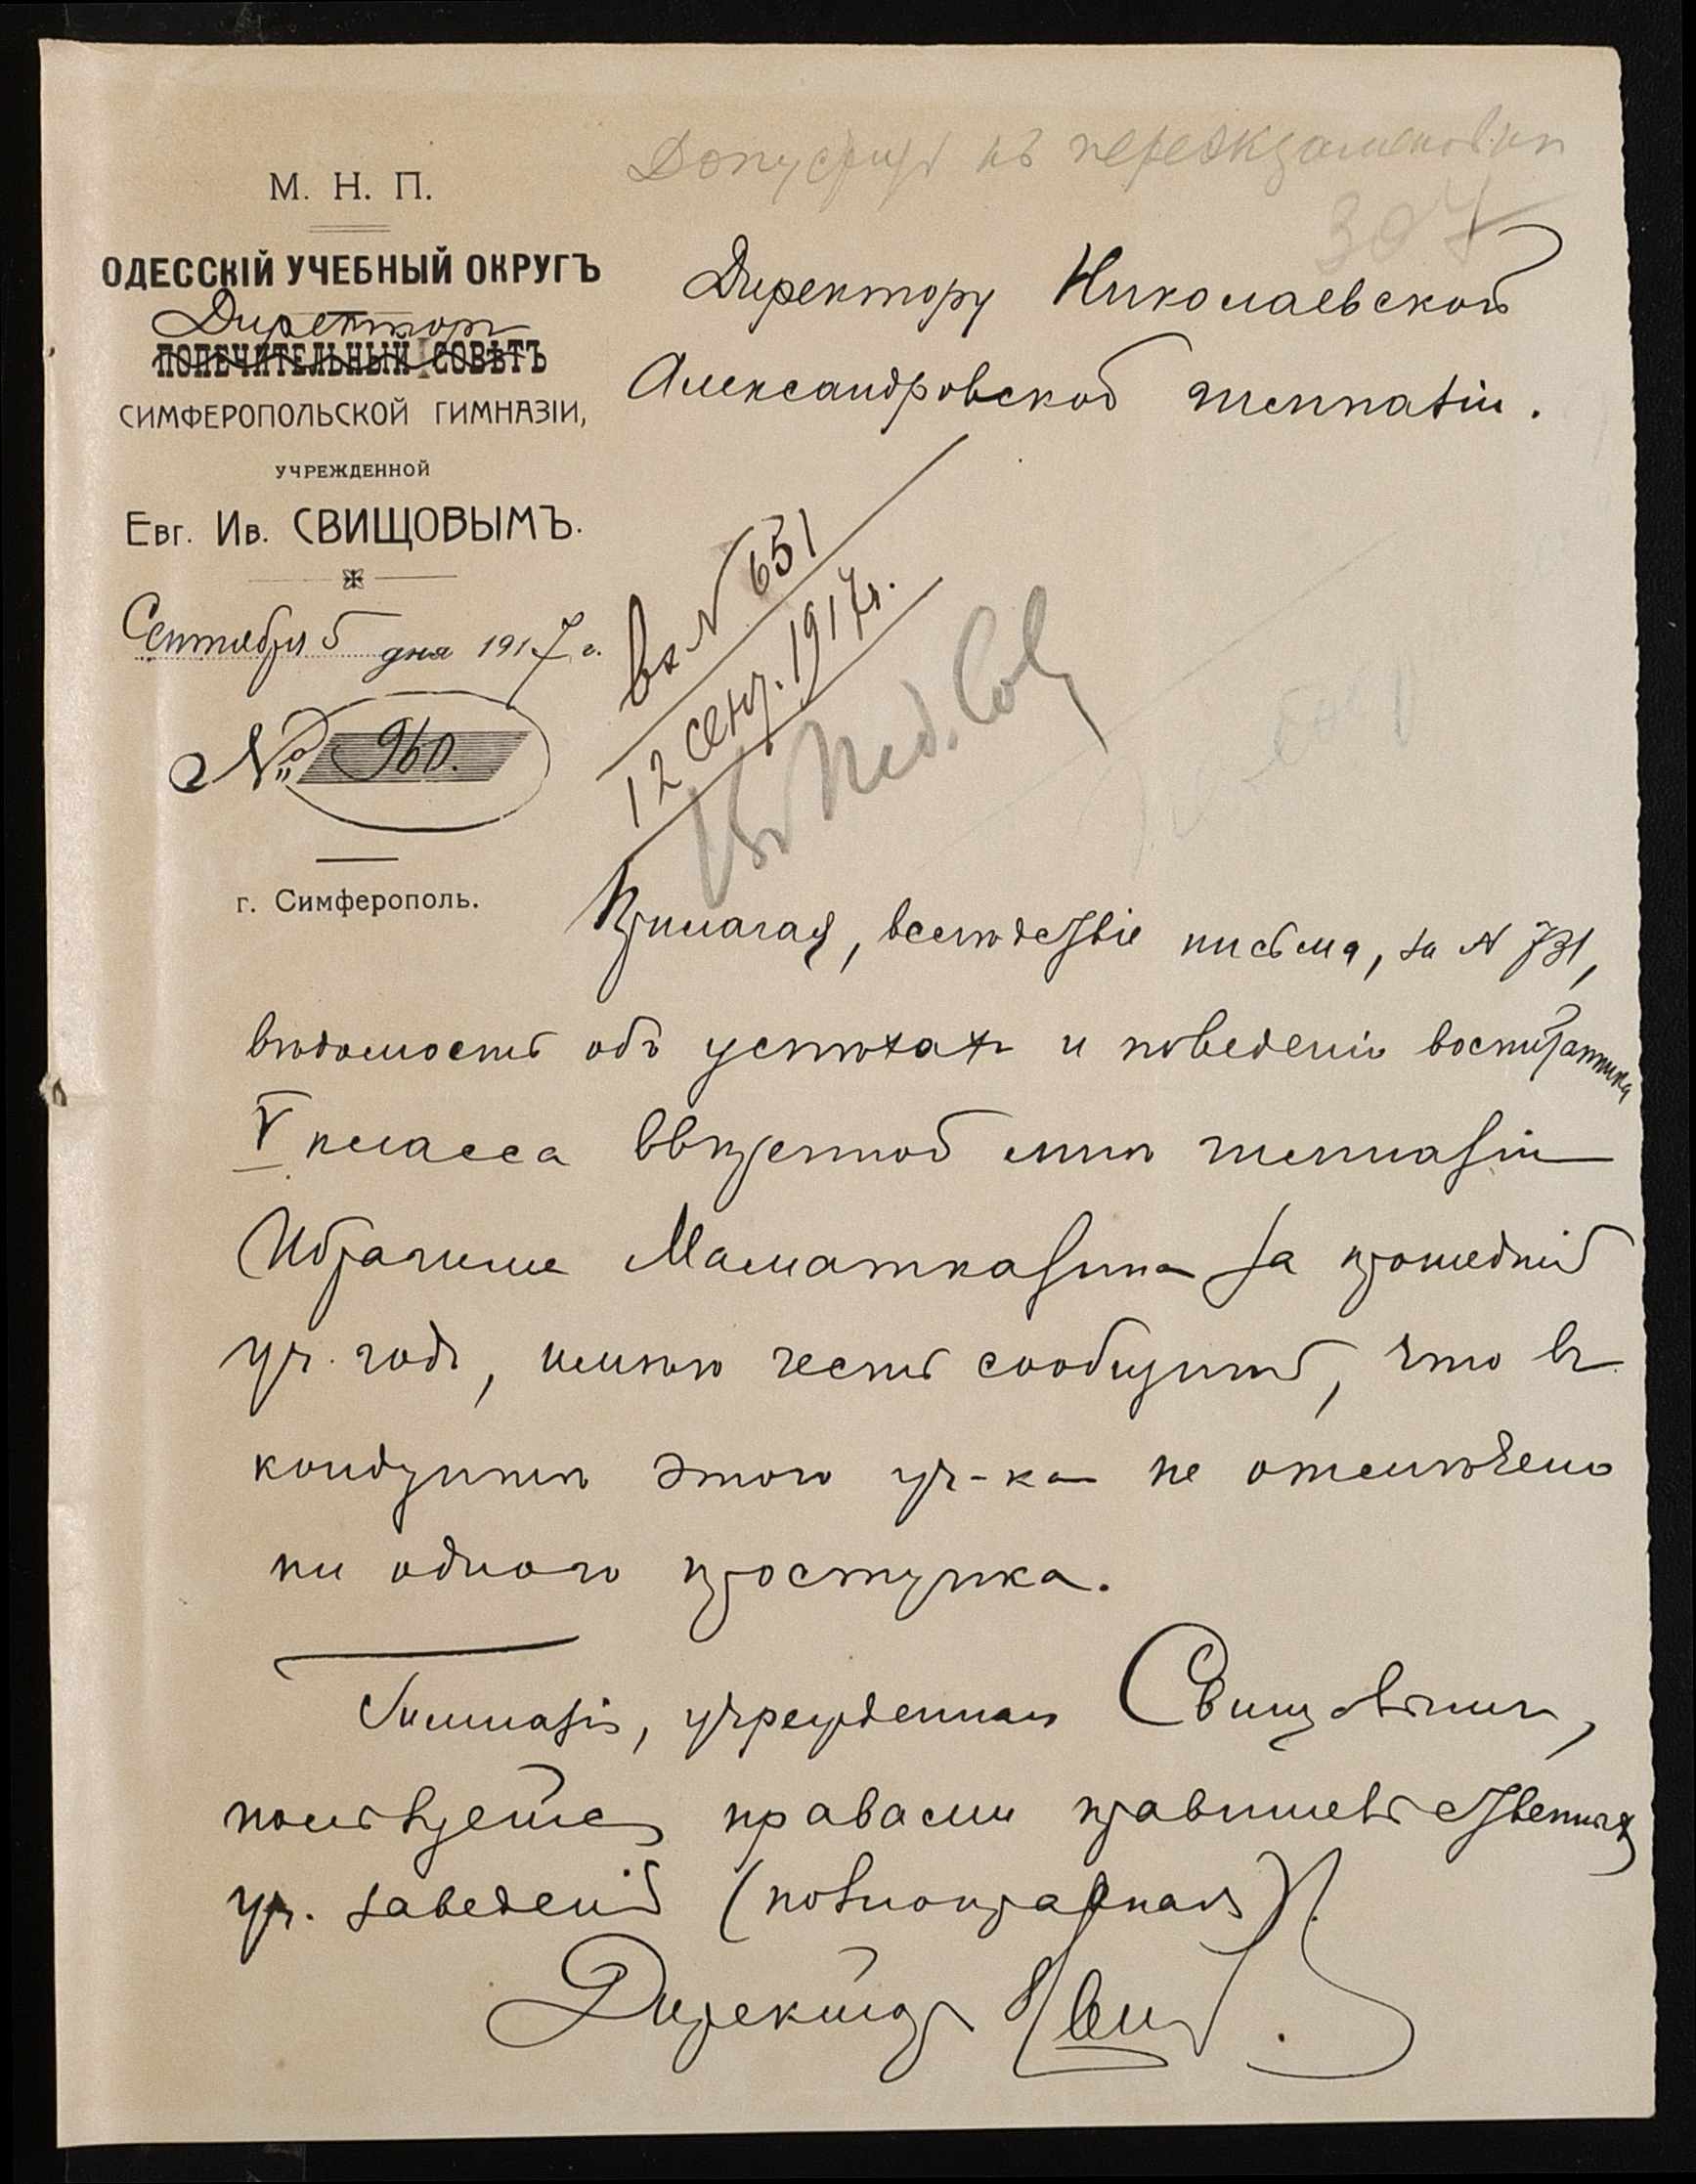 Допустить къ переэкзаменовкѣ
307
М. Н. П.
ОДЕССКІЙ УЧЕБНЫЙ ОКРУГЪ
Директоръ
ПОПЕЧИТЕЛЬНЫЙ СОВѢТЪ
СИМФЕРОПОЛЬСКОЙ ГИМНАЗІИ,
УЧРЕЖДЕННОЙ
Евг. Ив. СВИЩОВЫМЪ.
Сентября 5 дня 1917 г.
№ 960.
г. Симферополь.
Директору Николаевской
Александровской гимназіи.
вх № 651
12 сент. 1917 г.
Въ Пед. Сов
Прилагая, вслѣдствіе письма, за № 731,
вѣдомость объ успѣхахъ и поведеніи воспитанника
V класса ввѣренной мнѣ гимназіи
Ибрагима Маматказина за прошедшій
уч. годъ, имѣю честь сообщить, что въ
кондуитѣ этого уч-ка не отмѣчено
ни одного проступка.
Гимназія, учрежденная Свищовымъ,
пользуется правами правительственныхъ
уч. заведеній (полноправная).
Директоръ